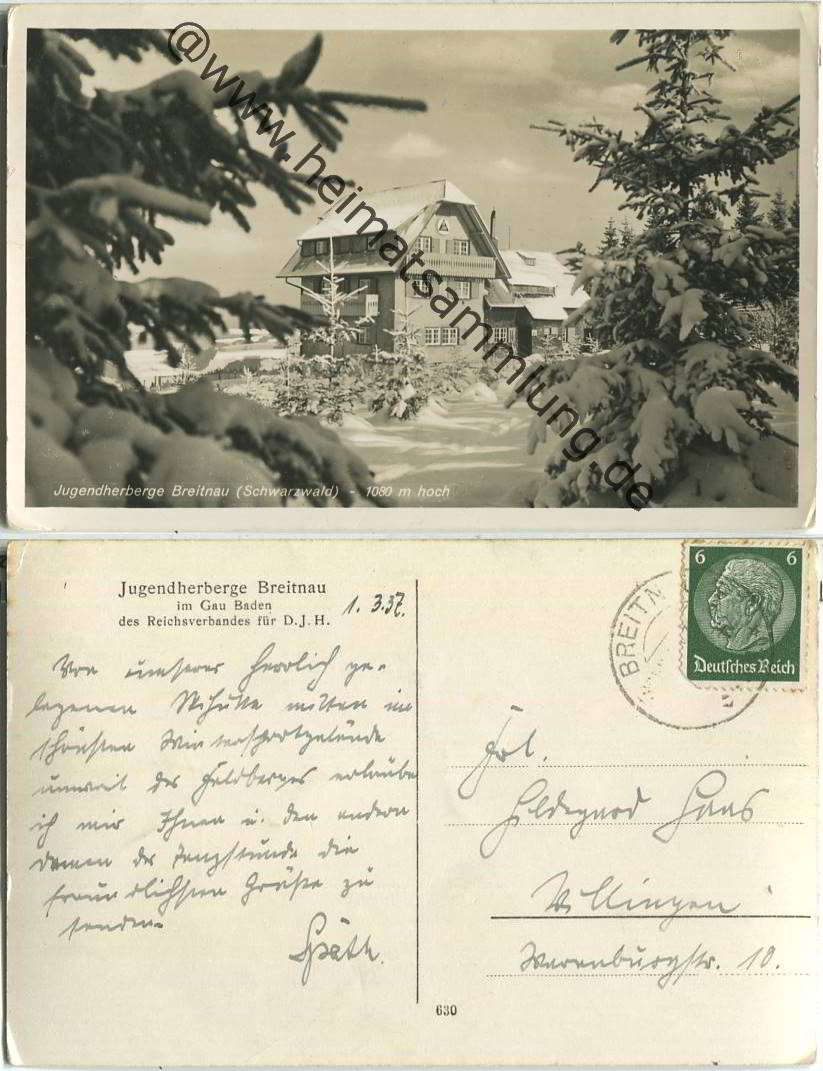 @www.heimatsammlung.de
Jugendherberge Breitnau (Schwarzwald) - 1080 m hoch
Jugendherberge Breitnau
im Gau Baden
des Reichsverbandes für D.J.H.
1.3.37.
Von unserer herrlich ge-
legenen Skihütte mitten im
schönsten Wintersportgelände
unweit des Feldberges erlaube
ich mir Ihnen u. den andern
Damen der Tanzstunde die
freundlichsten Grüße zu
senden.
Späth.
BREITN
6 6
Deutsches Reich
Frl.
Hildegard Haas
Villingen
Warenburgstr. 10.
630